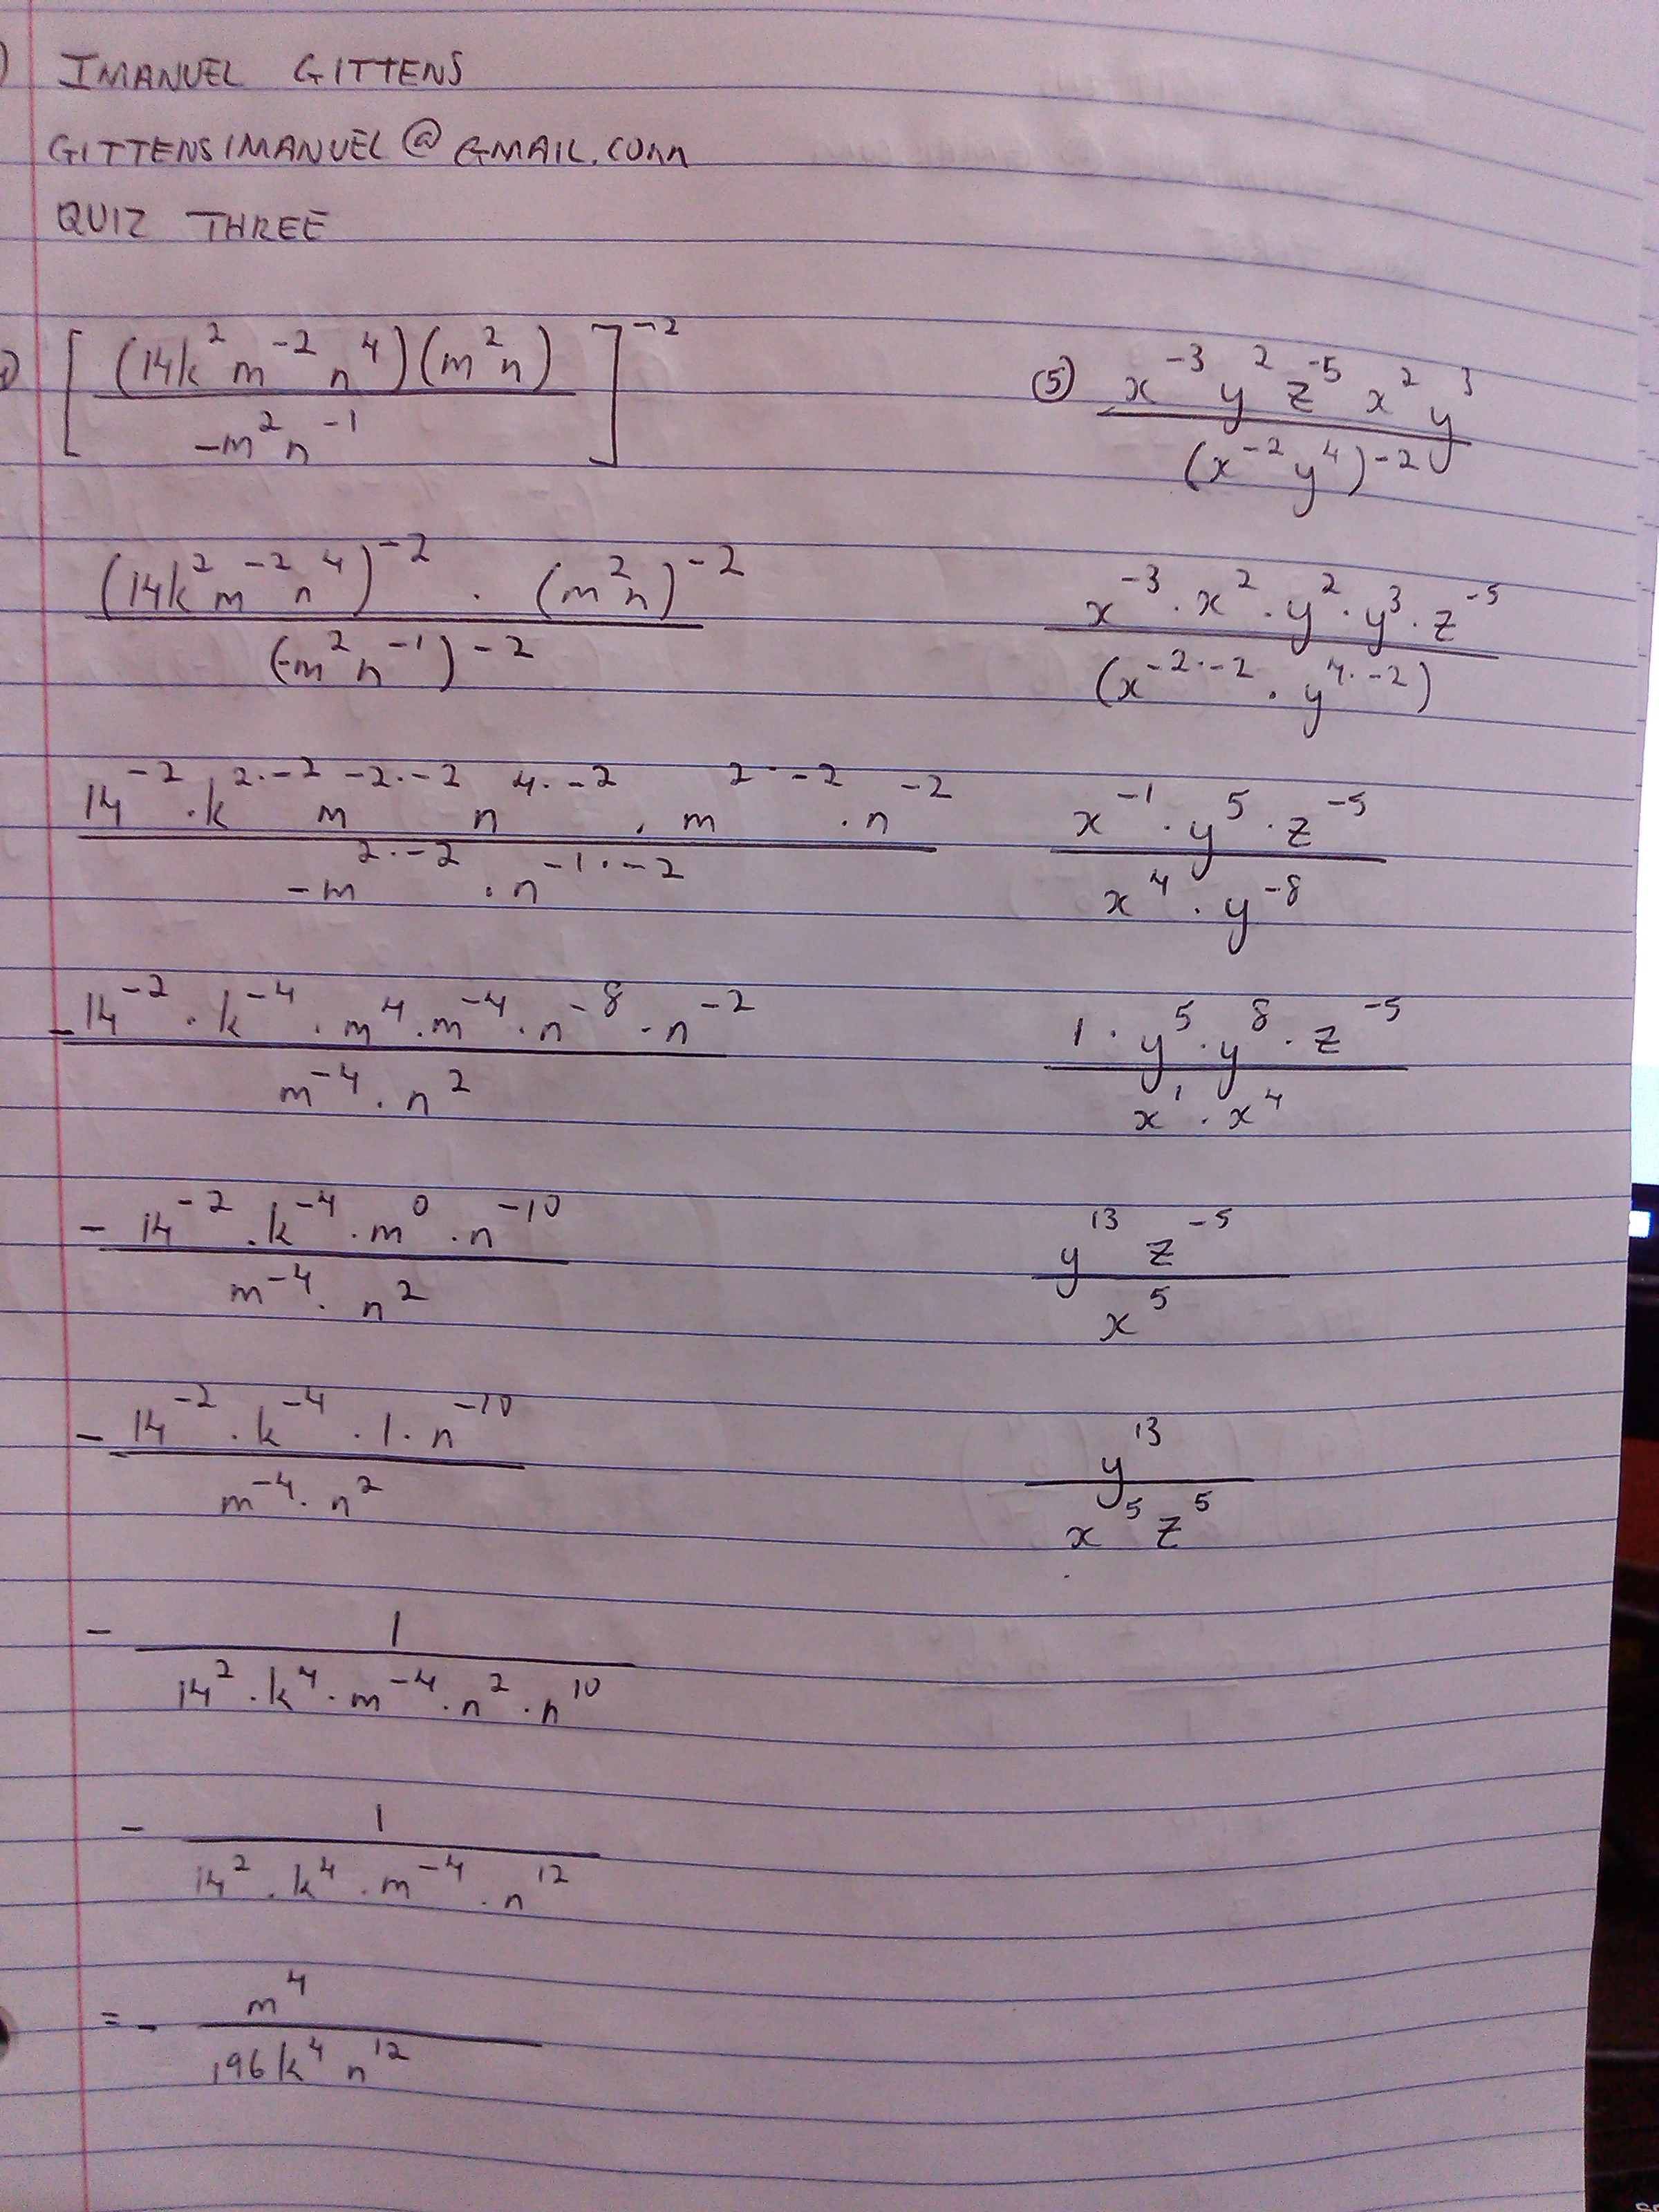 IMANUEL GITTENS
GITTENSIMANUEL@GMAIL.COM
QUIZ THREE
[(14k²m⁻²n⁴)(m²n) / -m²n⁻¹]⁻²
(14k²m⁻²n⁴)⁻² · (m²n)⁻² / (-m²n⁻¹)⁻²
14⁻² · k²·⁻² m⁻²·⁻² n⁴·⁻² · m²·⁻² · n⁻² / -m²·⁻² · n⁻¹·⁻²
-14⁻² · k⁻⁴ · m⁴ · m⁻⁴ · n⁻⁸ · n⁻² / m⁻⁴ · n²
- 14⁻² · k⁻⁴ · m⁰ · n⁻¹⁰ / m⁻⁴ · n²
- 14⁻² · k⁻⁴ · 1 · n⁻¹⁰ / m⁻⁴ · n²
- 1 / 14² · k⁴ · m⁻⁴ · n² · n¹⁰
- 1 / 14² · k⁴ · m⁻⁴ · n¹²
= - m⁴ / 196k⁴ n¹²
⑤ x⁻³ y² z⁻⁵ x² y³ / (x⁻²y⁴)⁻²
x⁻³ · x² · y² · y³ · z⁻⁵ / (x⁻²·⁻² · y⁴·⁻²)
x⁻¹ · y⁵ · z⁻⁵ / x⁴ · y⁻⁸
1 · y⁵ · y⁸ · z⁻⁵ / x¹ · x⁴
y¹³ z⁻⁵ / x⁵
y¹³ / x⁵ z⁵